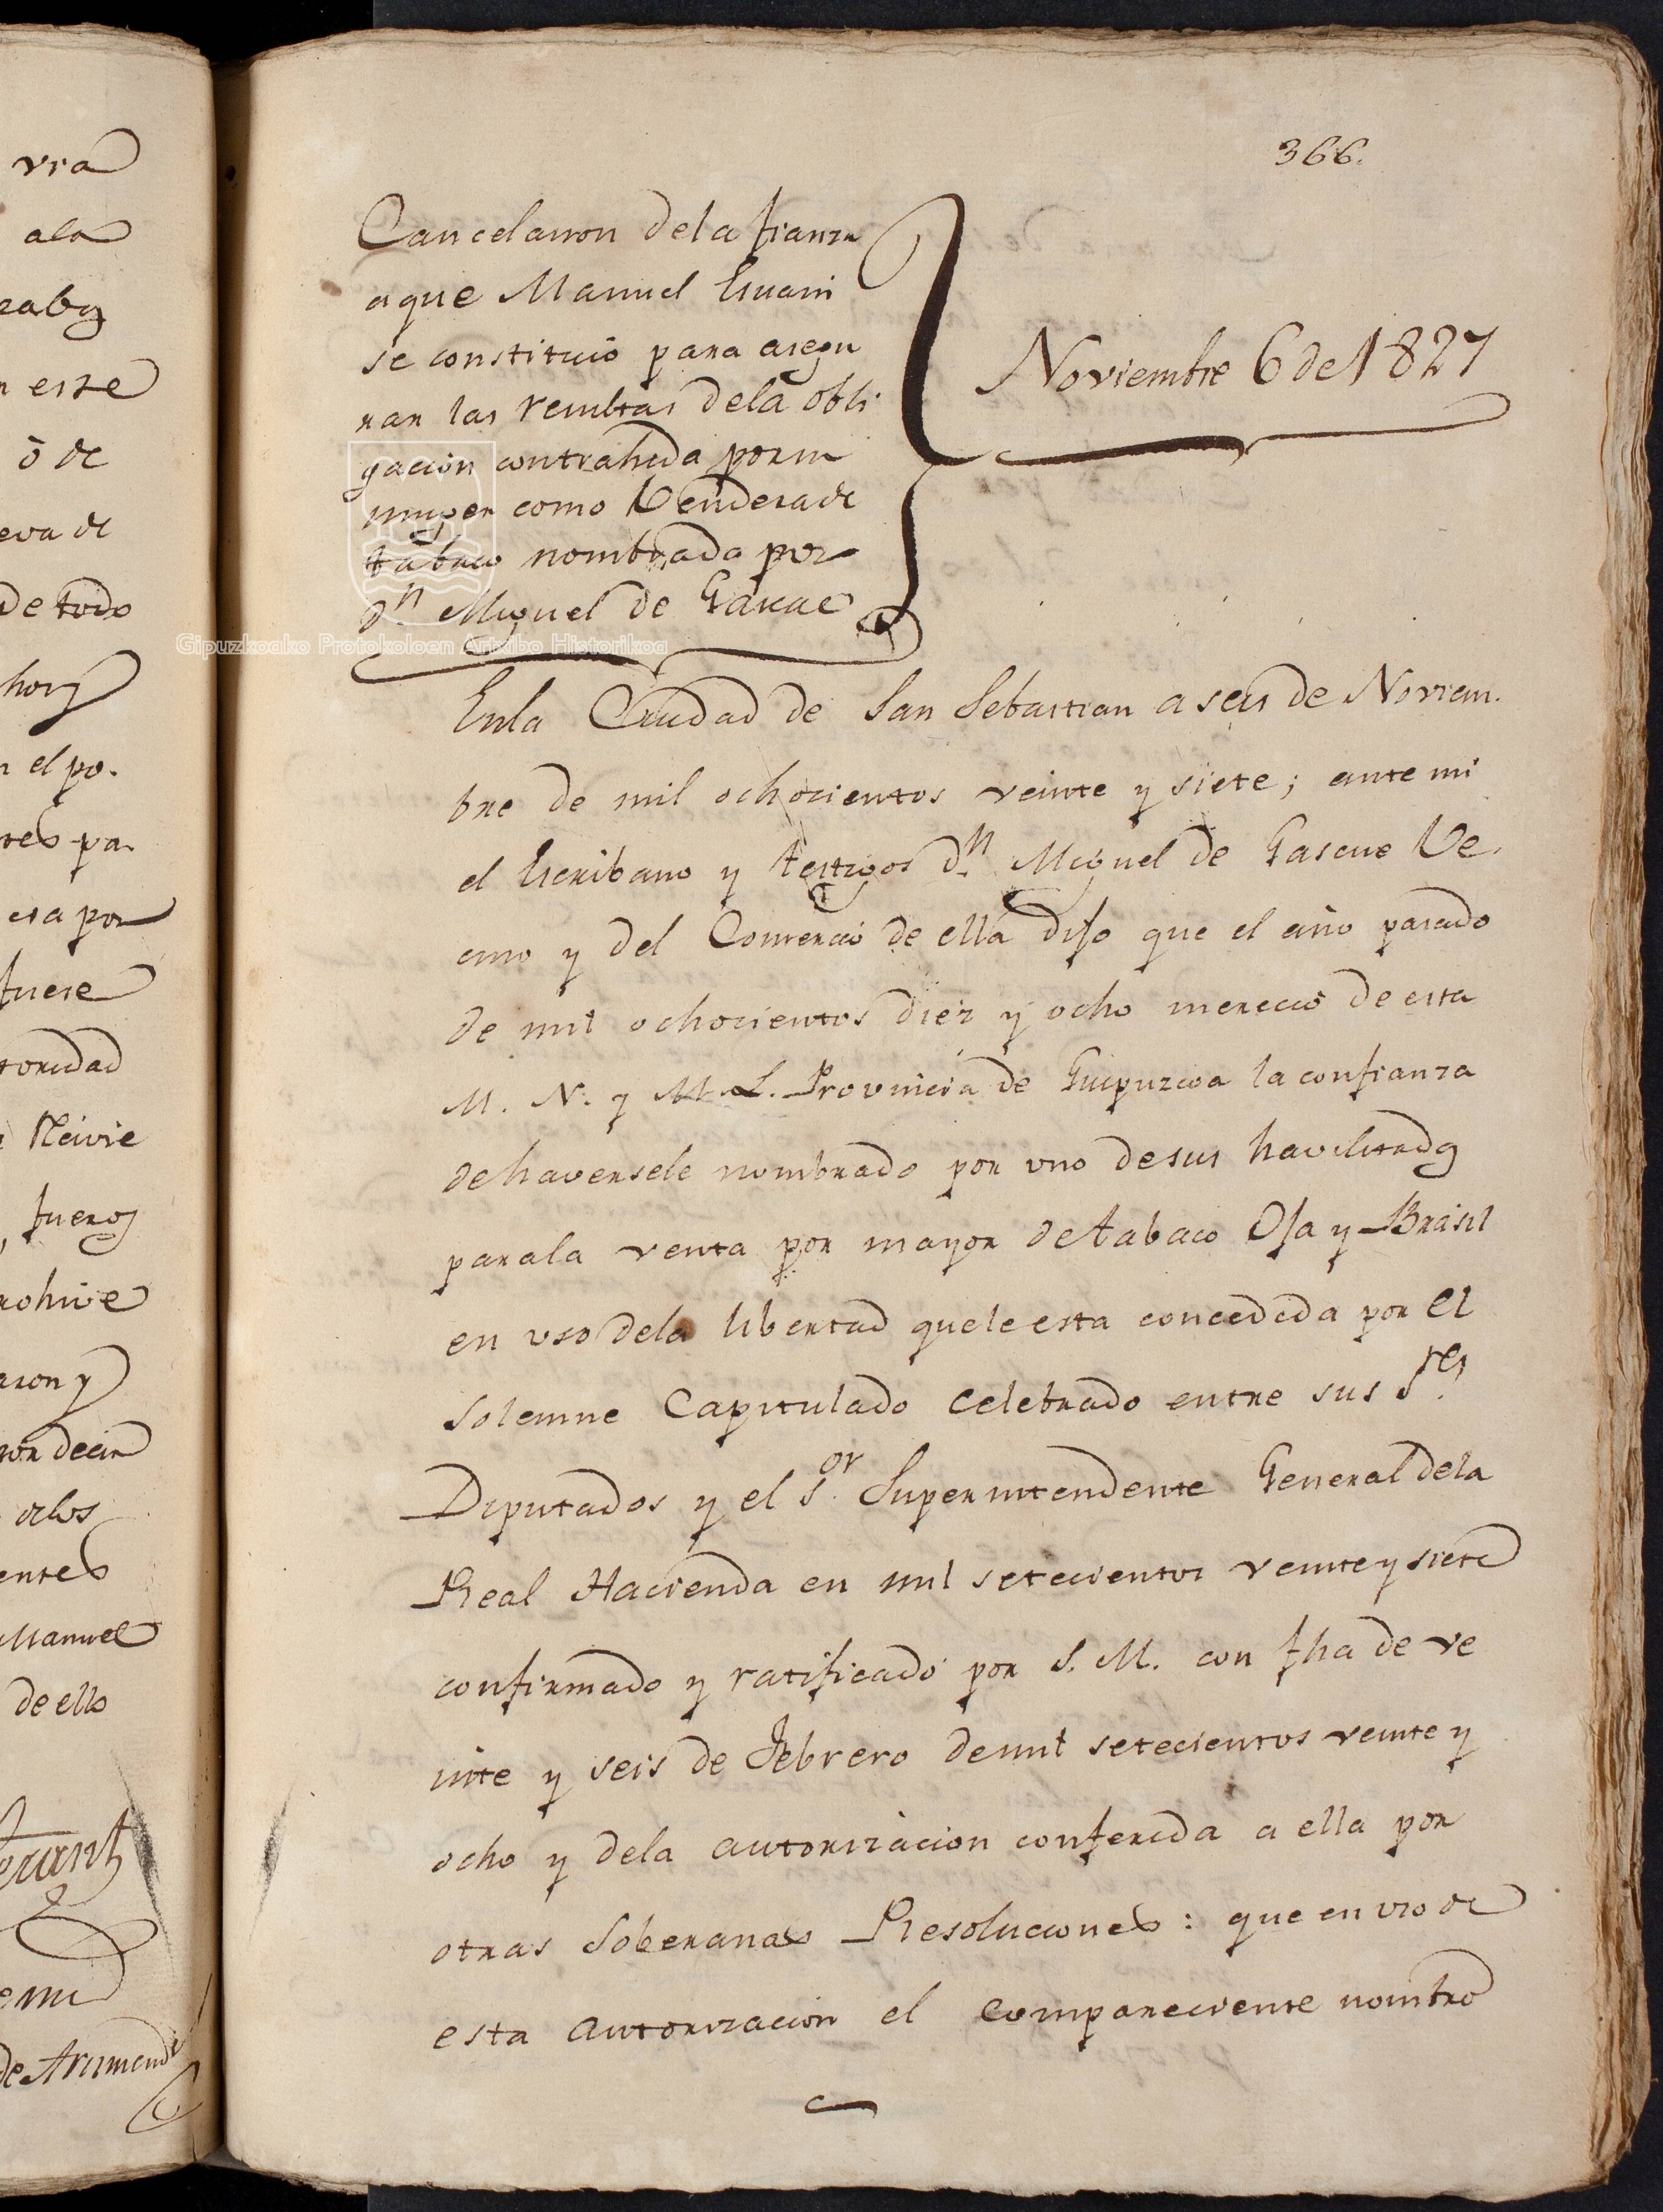 vra
ala
este
ò de
eva de
de todo
n el po.
res pa.
esa por
fuese
toridad
fueros
por decir
delos
entes
Manuel
de ello
de Arismendi
366.
Cancelacion dela fianza
a que Manuel
se constituió para asegu
rar las resultas dela obli
gacion contrahida por su
muger como Vendera de
tabaco nombrada por
Dn. Miguel de Gascue
Noviembre 6 de 1827
Enla Ciudad de San Sebastian a seis de Noviem.
bre de mil ochocientos veinte y siete; ante mi
el Escribano y testigos Dn. Miguel de Gascue Ve.
cino y del Comercio de ella dijo que el año pasado
de mil ochocientos diez y ocho mereció de esta
M. N. y M. L. Provincia de Guipuzcoa la confianza
de haversele nombrado por uno de sus havilitados
parala venta por mayor de tabaco Oja y Brasil
en uso dela libertad quele esta concedida por el
solemne Capitulado celebrado entre sus Sres.
Diputados y el Sor. Superintendente General dela
Real Hacienda en mil setecientos veinte y siete
confirmado y ratificado por S. M. con fha de ve
inte y seis de Febrero de mil setecientos veinte y
ocho y dela autorizacion conferida a ella por
otras Soberanas Resoluciones: que en uso de
esta autorizacion el compareciente nombró
Gipuzkoako Protokoloen Artxibo Historikoa